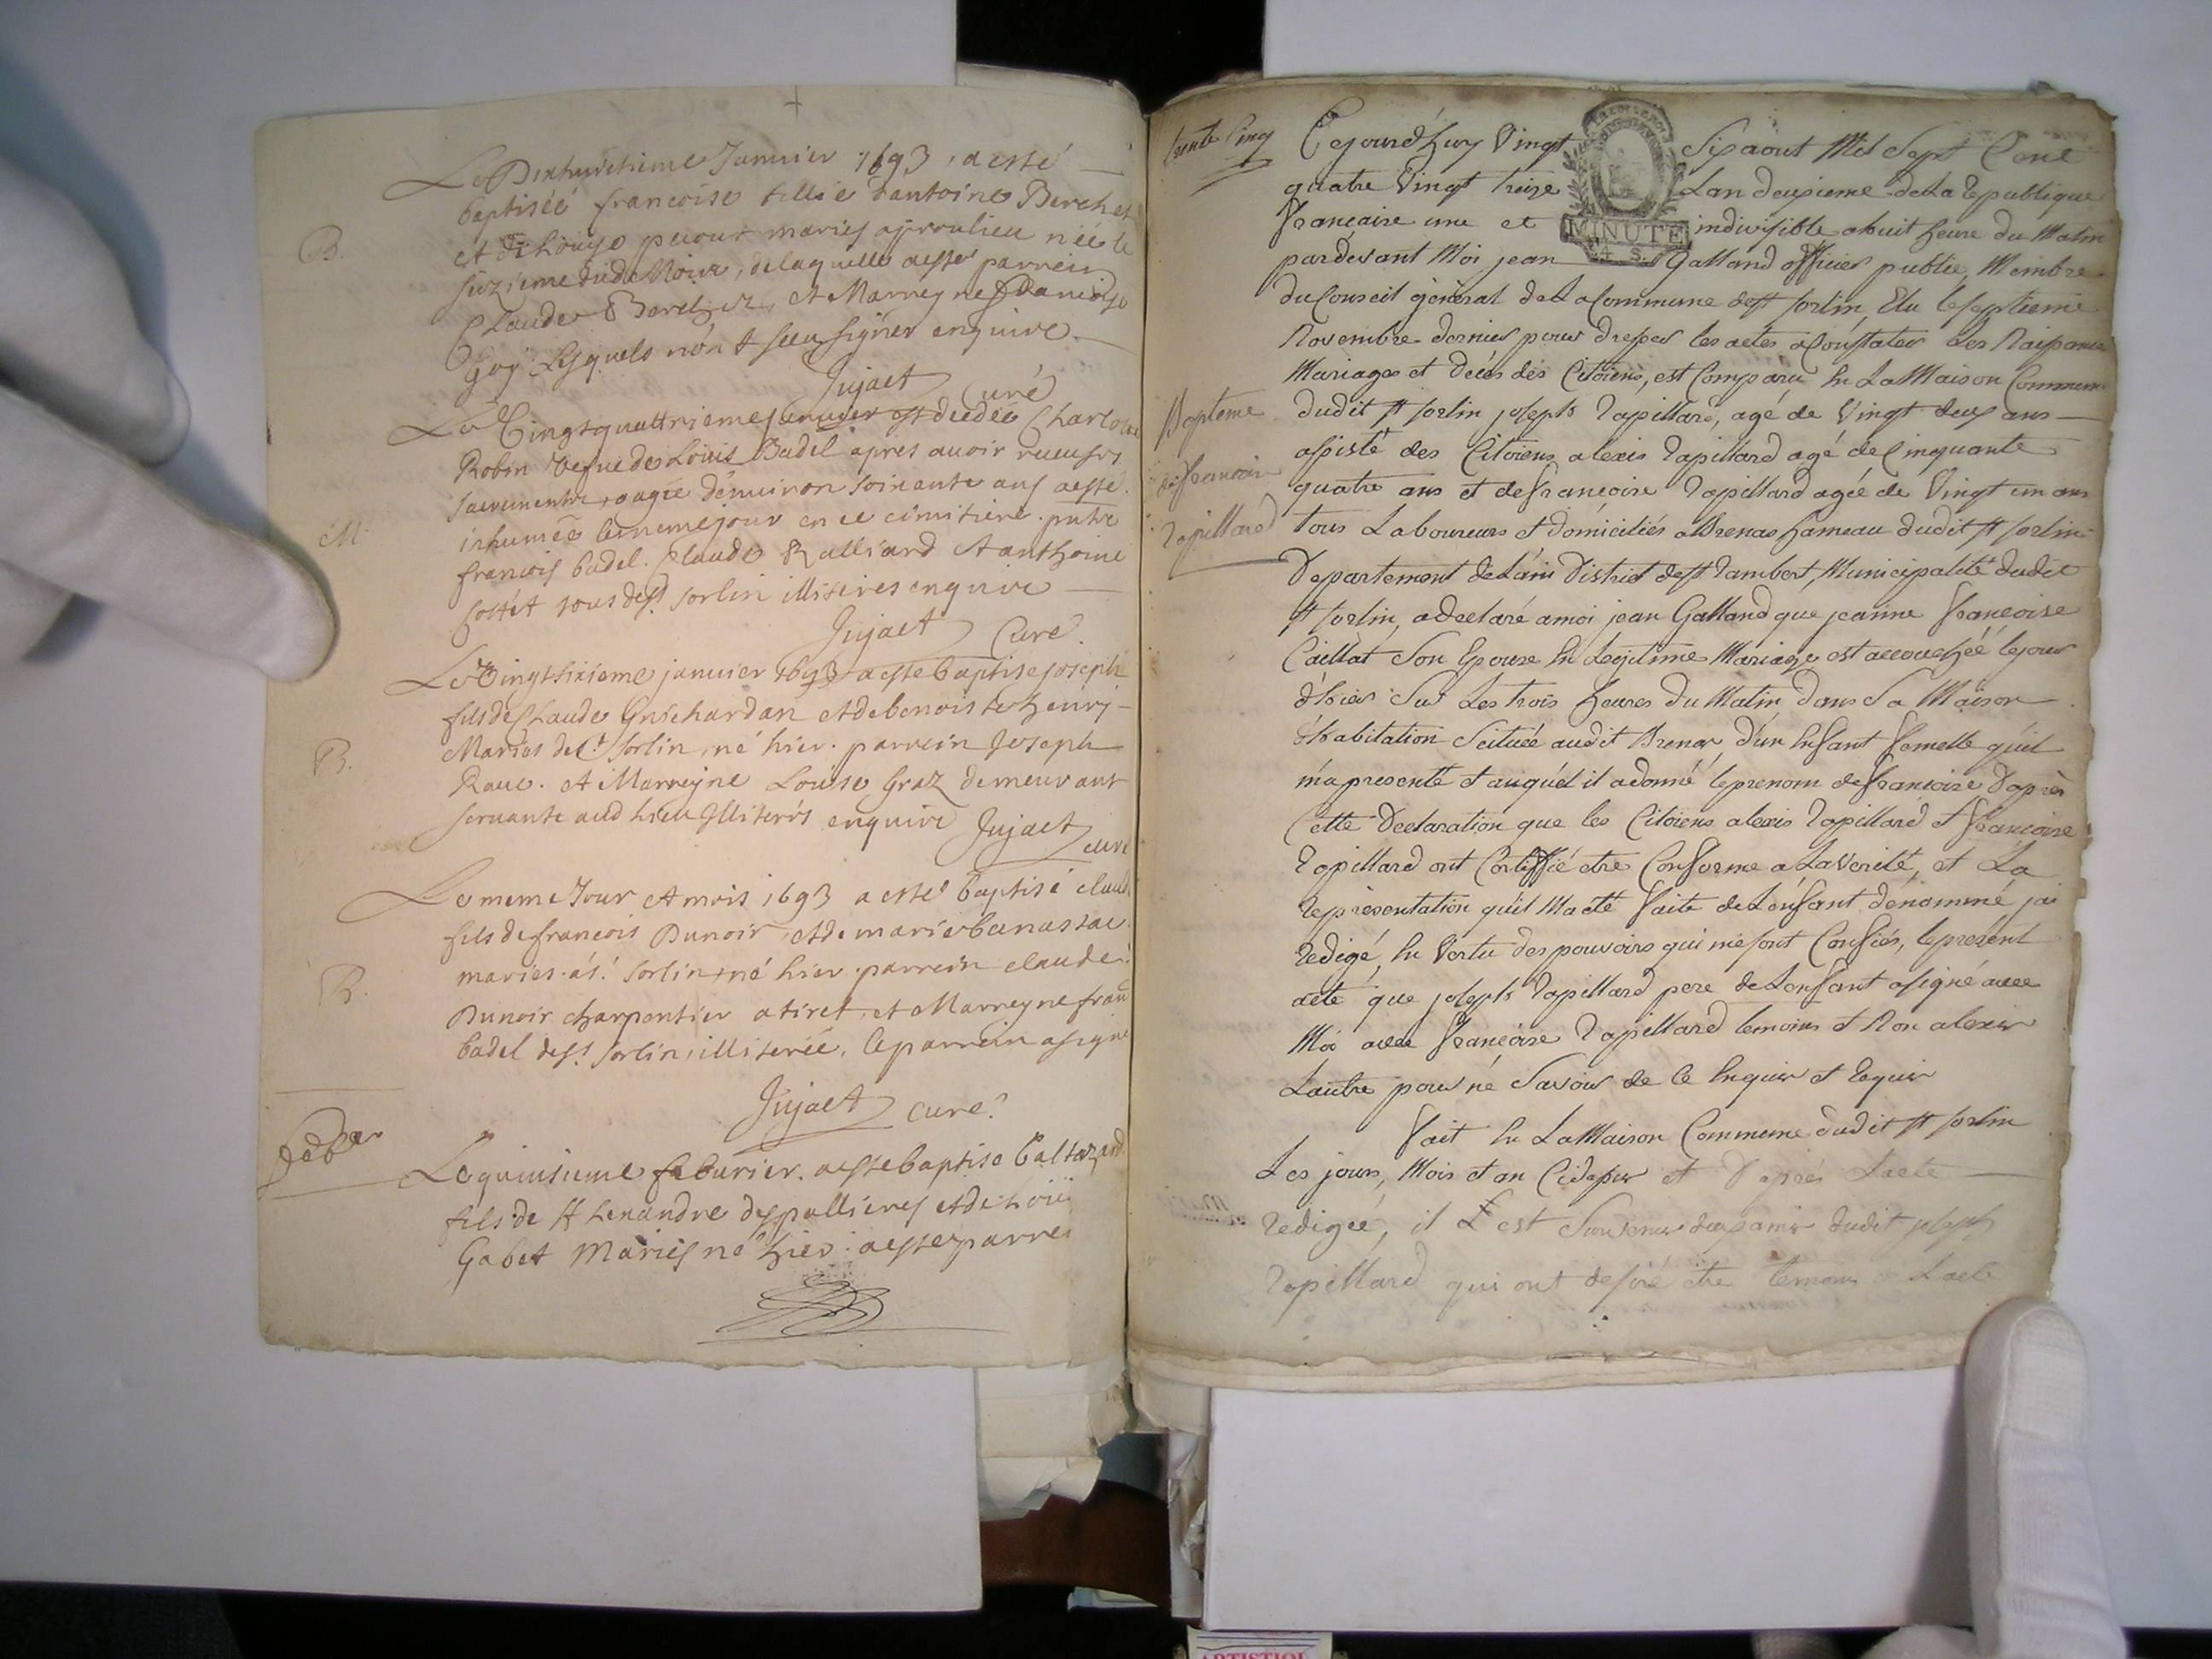 Le Dixhuictieme Januier 1693, a esté
baptiséé francoise fillie dantoine Berchet
et de Louyse mariés née le
B.
sixieme dud Mois, de laquelle a esté parrein
Claude Berchet, et Marreyne francoise
Goy Lesquels nón t sceu signer enquire
Jujact Curé
Le Vingtquattrieme januier est decedéé Charlotte
Robin vefue de Loüis Badel apres auoir receu ses
sacrements, aagéé denuiron soixante ans a esté
M.
inhuméé le meme jour en ce cimitiere. pntz
francois badel. Claude Ralliard et anthoine
tous de st. sorlin illiteres enquire
Jujact Curé.
Le Vingtsixieme januier 1693 a esté baptisé joseph
fils de Claude Guichardan et de benoiste henry
Mariés de St sorlin, né hier. parrein Joseph
B.
Raue. et Marreyne Louise Graz demeurant
seruante aud lieu Illiterés enquire Jujact curé
Le meme Jour et mois 1693 a esté baptisé claude
fils de francois Dunoir et de marie banassac
mariés a st. sorlin, né hier. parrein claude
B.
Dunoir charpentier a tiret, et Marreyne fran
badel de st. sorlin, illiteréé, le parrein a signé
Jujact curé.
feber
Le quinsieme feburier. a esté baptisé baltazard
fils de Alexandre despallieres et de Loüi
Gabet Mariés né hier: a esté parre
trente Cinq
Cejourd'huy Vingt Six aout Mil Sept Cent
quatre Vingt treize Lan deuxieme de La republique
francaise une et indivisible a huit heure du Matin
MINUTE
4 S.
pardevant Moi jean Galland officier public, Membre
du Conseil général de La Commune de st sorlin, Elu le septieme
Novembre dernier pour dresser les actes a Constater Les Naissance
Mariages et décès des Citoiens, est Comparu En La Maison Commune
Bapteme
dudit st sorlin joseph rapillard, agé de Vingt deux ans
assisté des Citoiens alexis rapillard agé de Cinquante
de francoise
quatre ans et de francoise rapillard agée de Vingt un ans
rapillard
tous Laboureurs et domiciliés a Brenas hameau dudit st sorlin
Departement de L'ain District de st rambert, Municipalité dudit
st sorlin, a declaré a moi jean Galland que jeanne francoise
Caillat Son Epouse En Legitime Mariage est accouchéé le jour
d'hier Sur Les trois heures du Matin dans Sa Maison
d'habitation Scituée audit Brenas d'un Enfant femelle qu'il
m'a presenté et auquel il a donné le prenom de francoise D'après
Cette Declaration que les Citoiens alexis rapillard et francoise
rapillard ont Certiffié etre Conforme a La Verité, et La
representation qu'il M'a eté faite de L'enfant dénommé, jai
redigé, En Vertu des pouvoirs qui me sont Confiés, le present
acte que joseph rapillard pere de L'enfant a signé avec
Moi avec francoise rapillard temoins et Non alexis
Lautre pour ne Savoir de Ce Enquis et requis
fait En La Maison Commune dudit st sorlin
Les jours, Mois et an Cidessus et D'après Lacte
redigéé, il Est Survenu des amis dudit joseph
rapillard qui ont desiré etre temoins Lacte